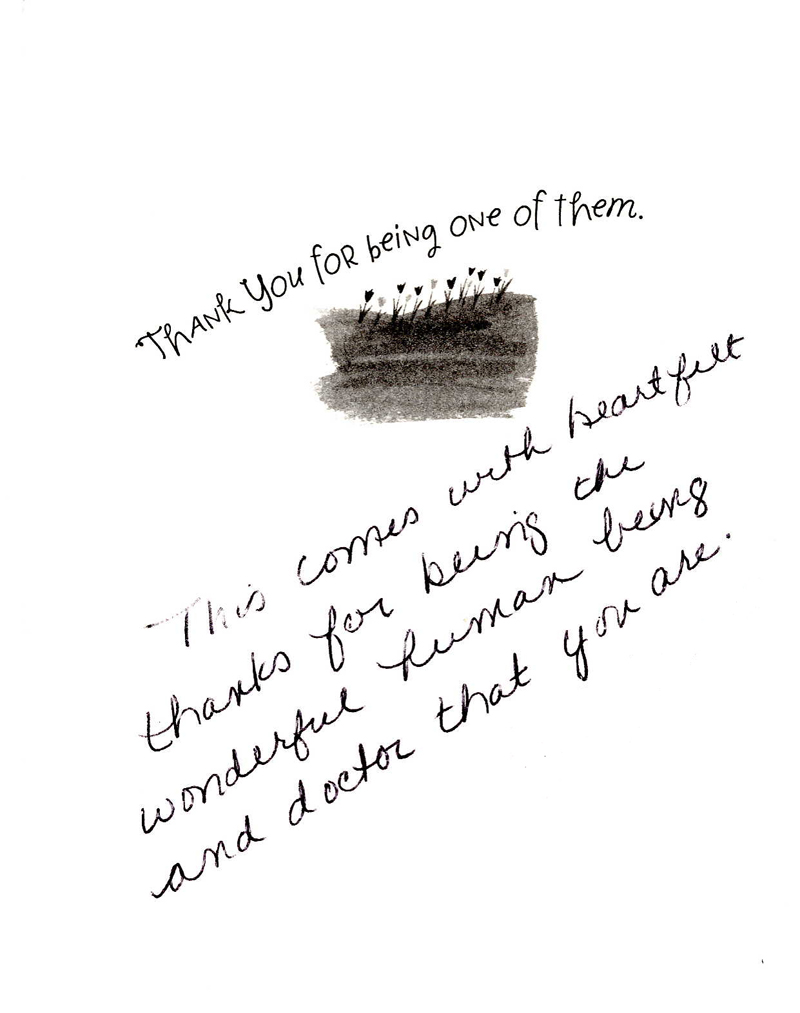 Thank You for being one of them.
This comes with heartfelt
thanks for being the
wonderful human being
and doctor that you are.